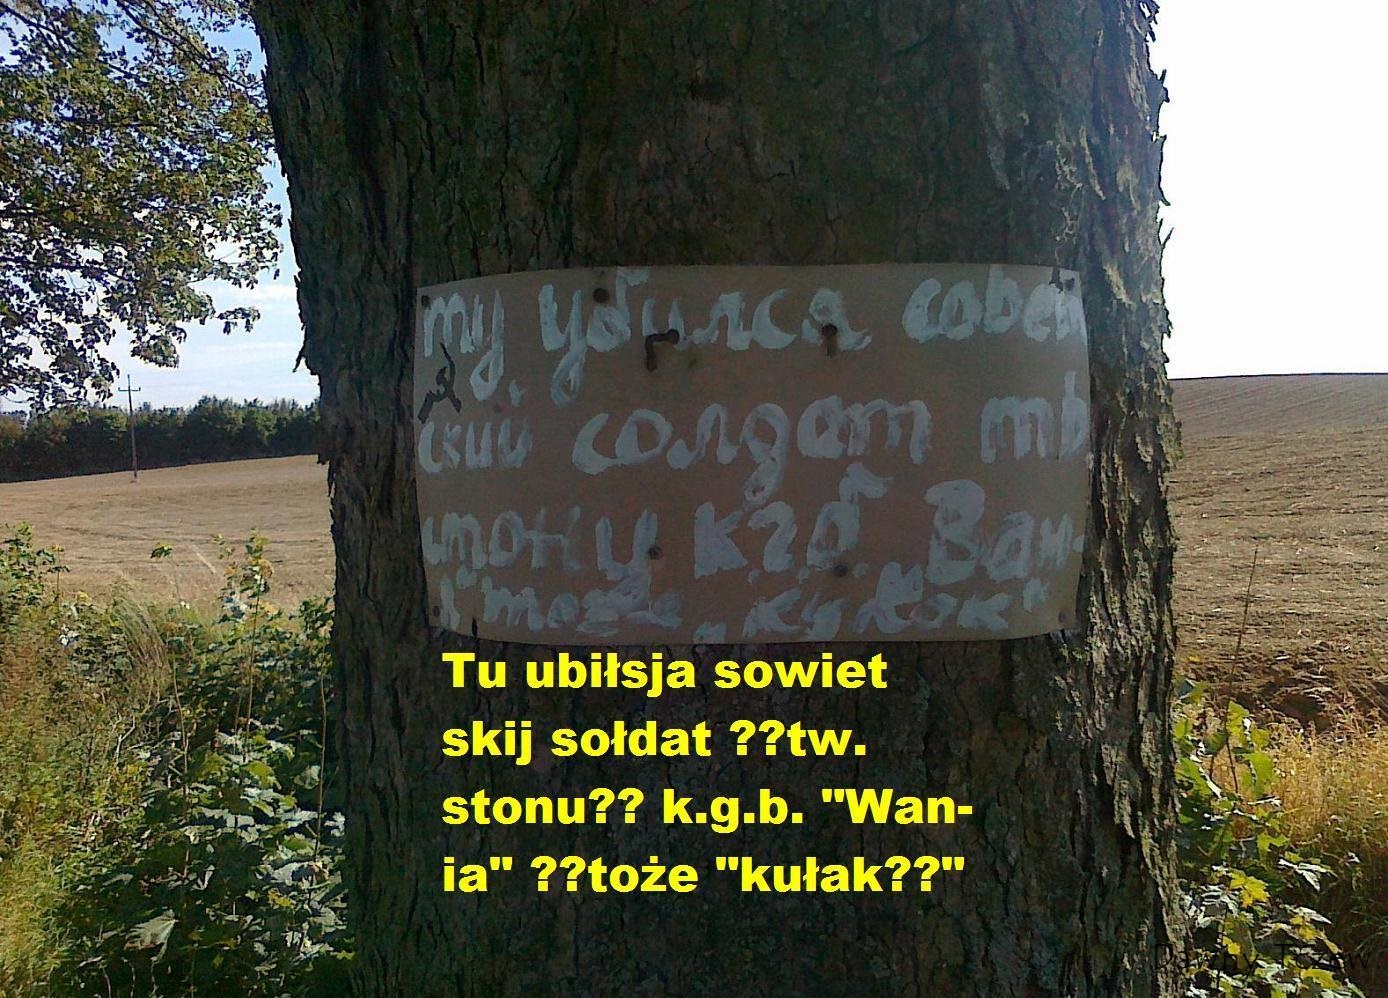 ту убился совет
ский солдат тв.
стону к.г.б. „Ван-
я" тоже „кулак"
Tu ubiłsja sowiet
skij sołdat ??tw.
stonu?? k.g.b. "Wan-
ia" ??toże "kułak??"
Dawny Tczew